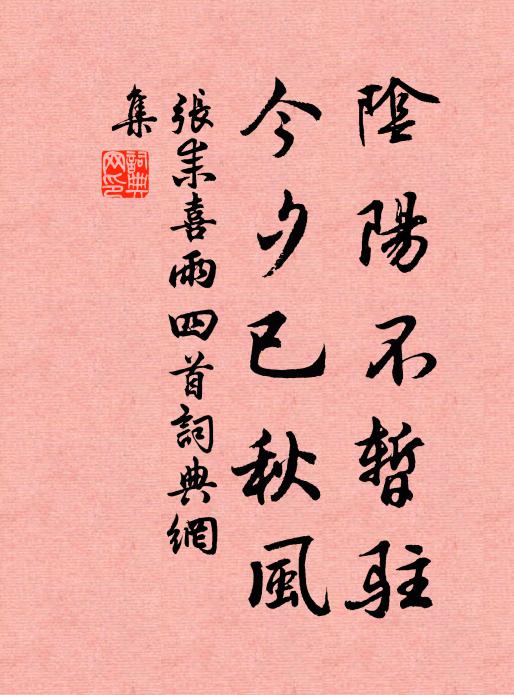 陰陽不暫駐
今夕已秋風
張耒喜雨四首詞典網
集
詞典網印